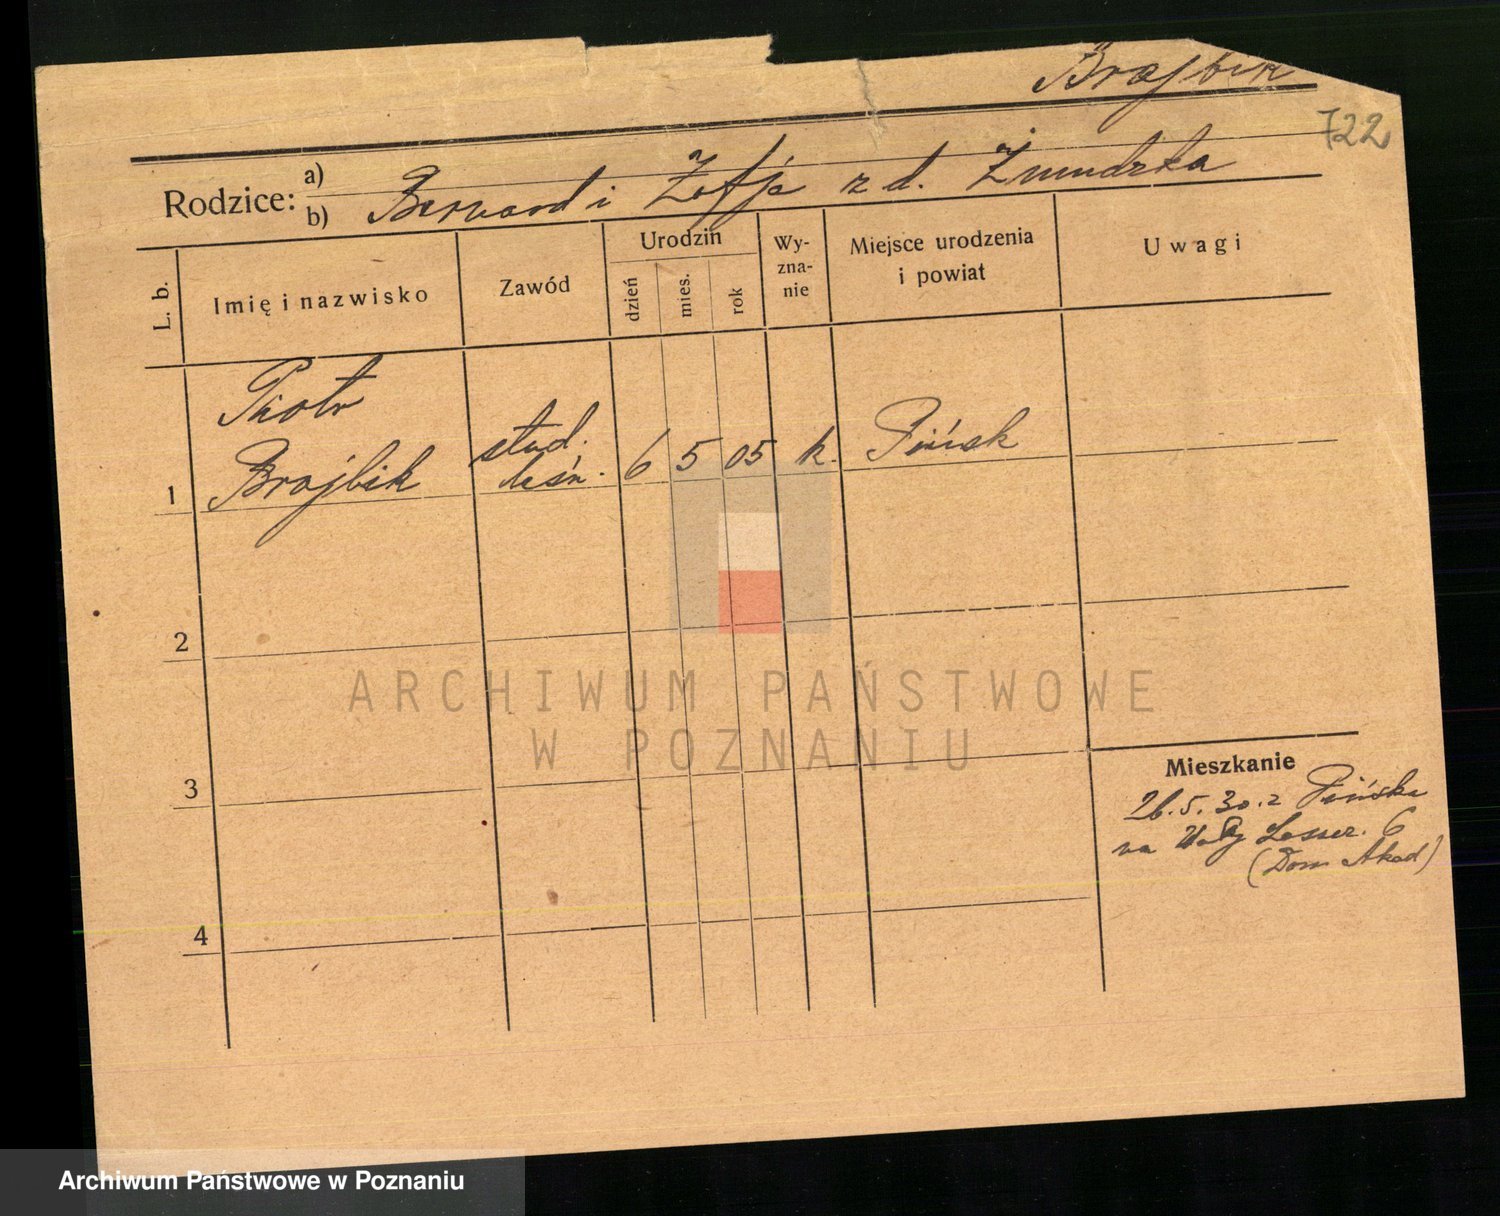 Brajbik
722
Rodzice: a)
b) Bernard i Zofja z d. Żmudzka
L. b.
Imię i nazwisko
Zawód
Urodzin
dzień
mies.
rok
Wy-
zna-
nie
Miejsce urodzenia
i powiat
Uwagi
Piotr
Brajbik
stud.
leśn.
6 5 05 k. Pińsk
1
2
3
4
Mieszkanie
26.5.30. z Pińska
na Wały Leszcz. 6
(Dom Akad)
ARCHIWUM PAŃSTWOWE
W POZNANIU
Archiwum Państwowe w Poznaniu